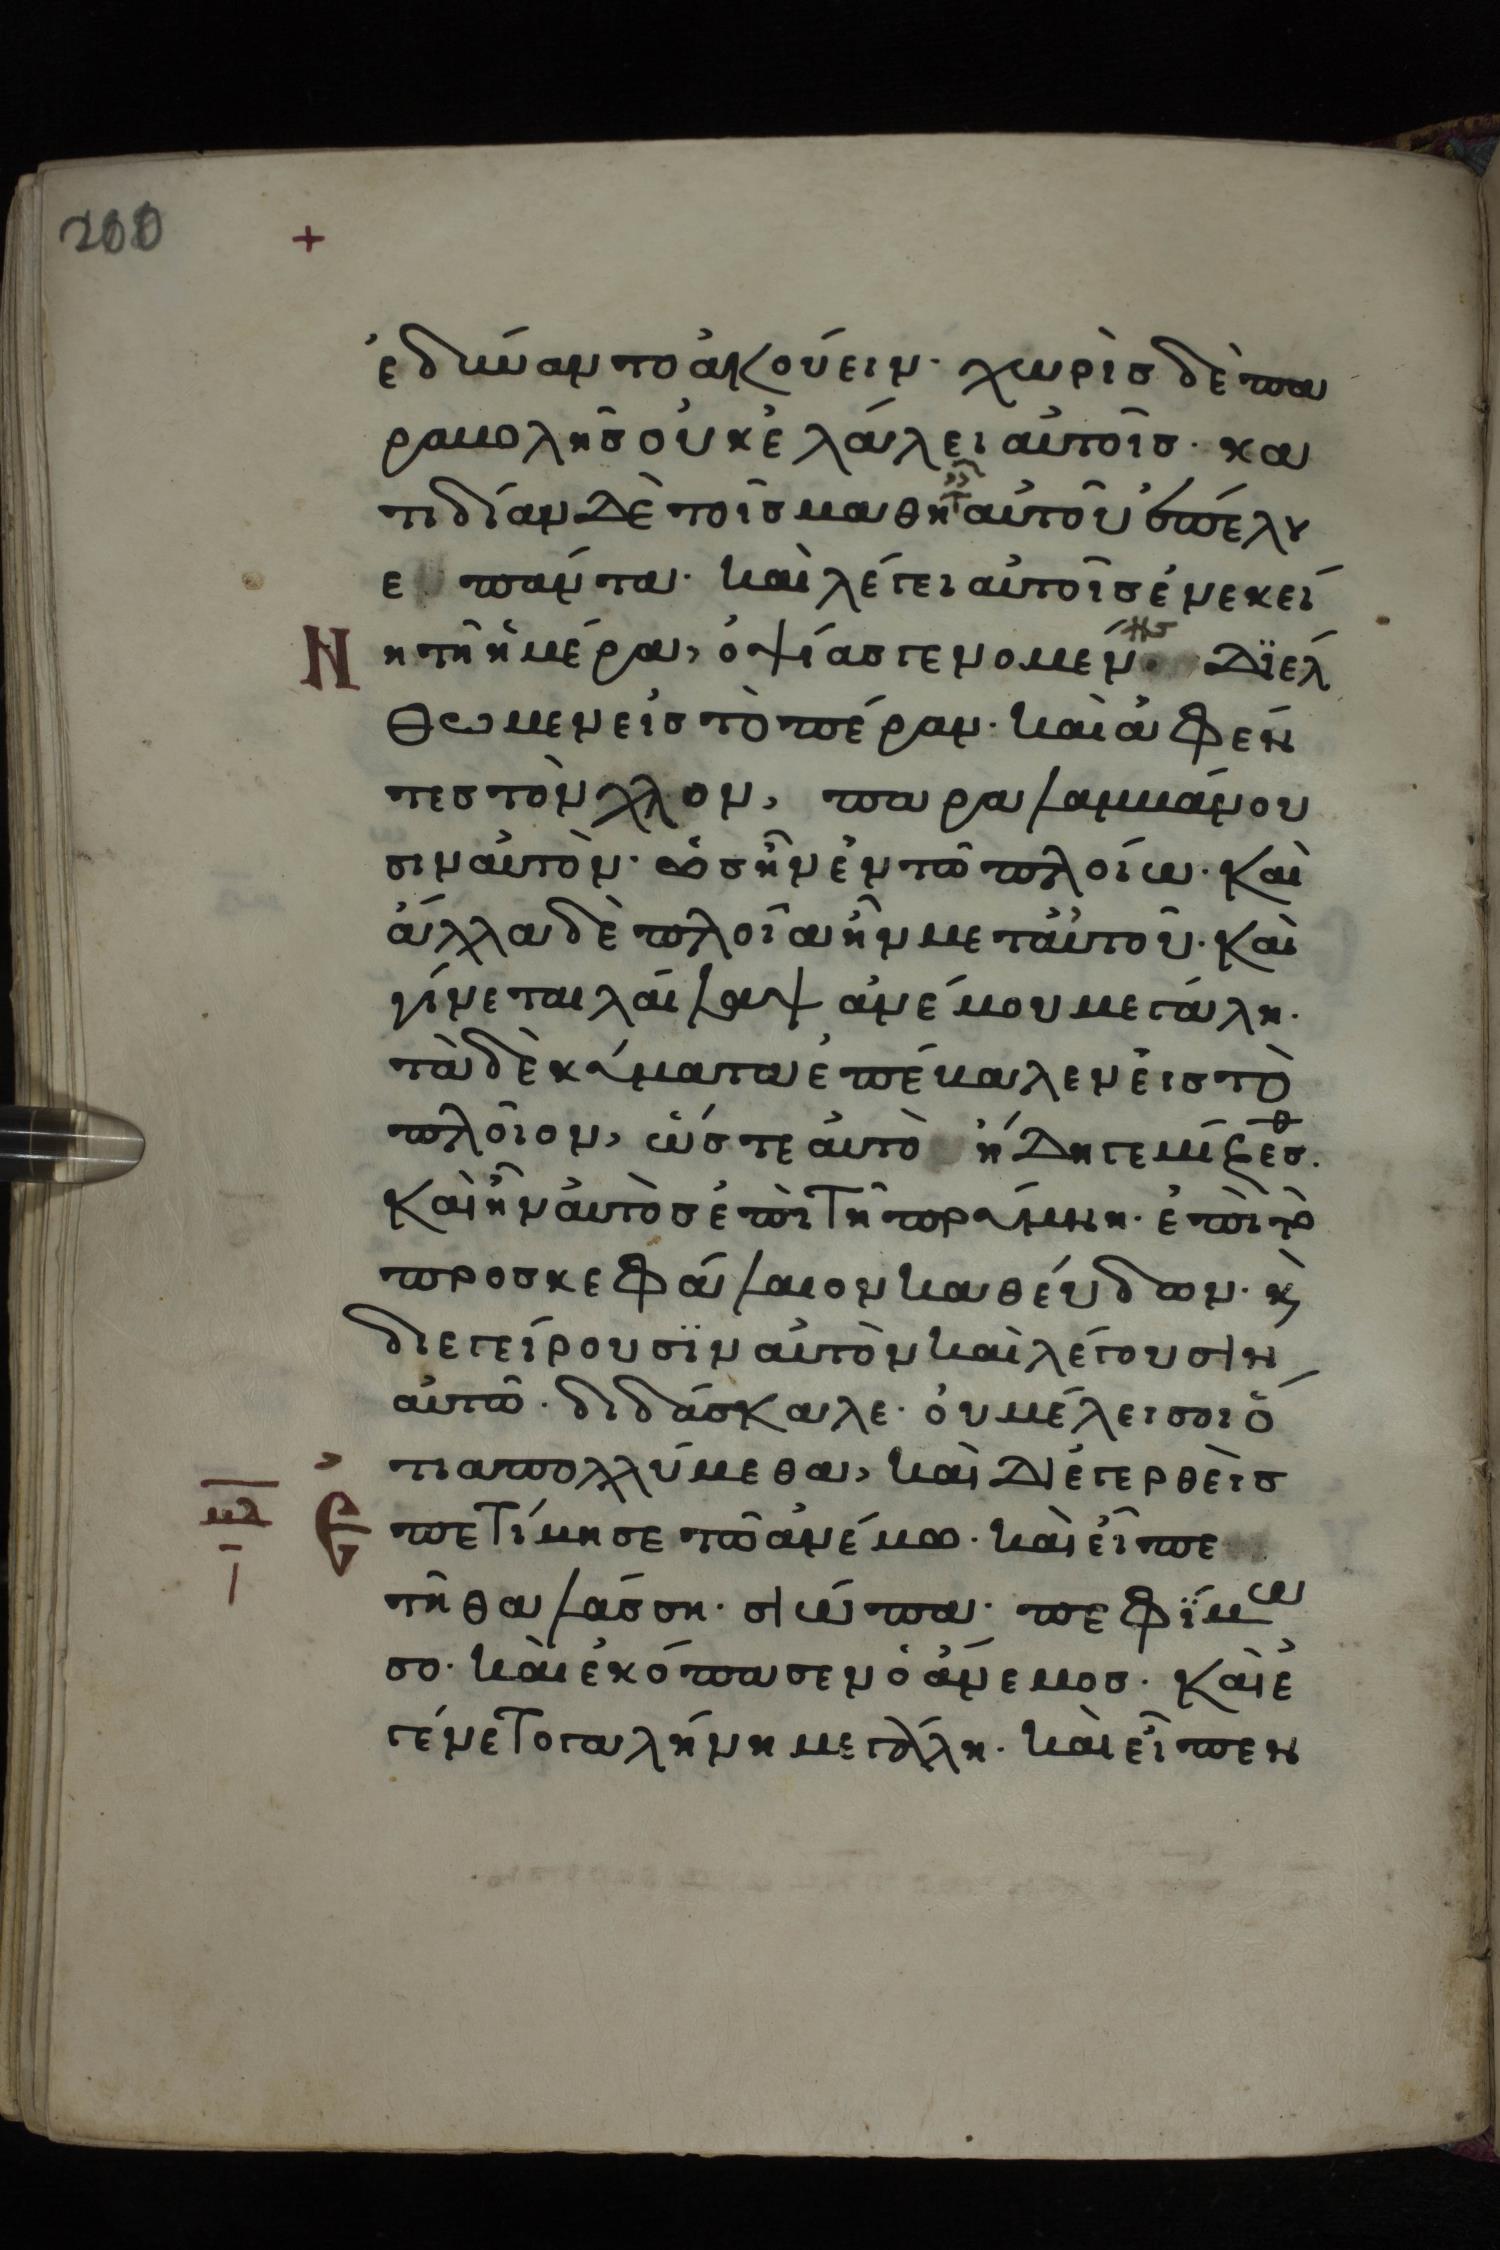 200
+
ἐδύναντο ἀκούειν· χωρὶσ δὲ πα
ραβολῆσ οὐκ ἐλάλει αὐτοῖσ· κα
τιδίαν δὲ τοῖσ μαθητ αὐτοῦ ἐπέλυ
ε πάντα· καὶ λέγει αὐτοῖσ ἐν ἐκεί
Ν νη τῆ ἡμέρα, ὀψίασ γενομένησ Διέλ
θωμεν εἰσ τὸ πέραν· καὶ ἀφέν
τεσ τὸν χλον, παραλαμβάνου
σιν αὐτὸν· ὡσ ἦν ἐν τῶ πλοίω· Καὶ
ἄλλα δὲ πλοῖα ἦν μεταὐτοῦ· Καὶ
γίνεται λαίλαψ ἀνέμου μεγάλη·
τὰ δὲ κύματα ἐπέβαλεν εἰσ τὸ
πλοῖον, ὥστε αὐτὸ ἤδη γεμίζεσθ.
Καὶ ἦν αὐτὸσ ἐπὶ τῆ πρύμνη· ἐπὶ τὸ
προσκεφάλαιον καθεύδων· κ
διεγείρουσϊν αὐτὸν καὶ λέγουσιν
αὐτῶ· διδάσκαλε· οὐ μέλει σοι ὅ
τι απολλύμεθα, καὶ Διεγερθεὶσ
μλ ι Ἐ πετίμησε τῶ ἀνέμω· καὶ εἶπε
τῆ θαλάσση· σιώπα· πεφίμω
σο· καὶ ἐκόπασεν ὁ ἄνεμοσ· Καὶ ἐ
γένετο γαλήνη μεγάλη· καὶ εἶπεν